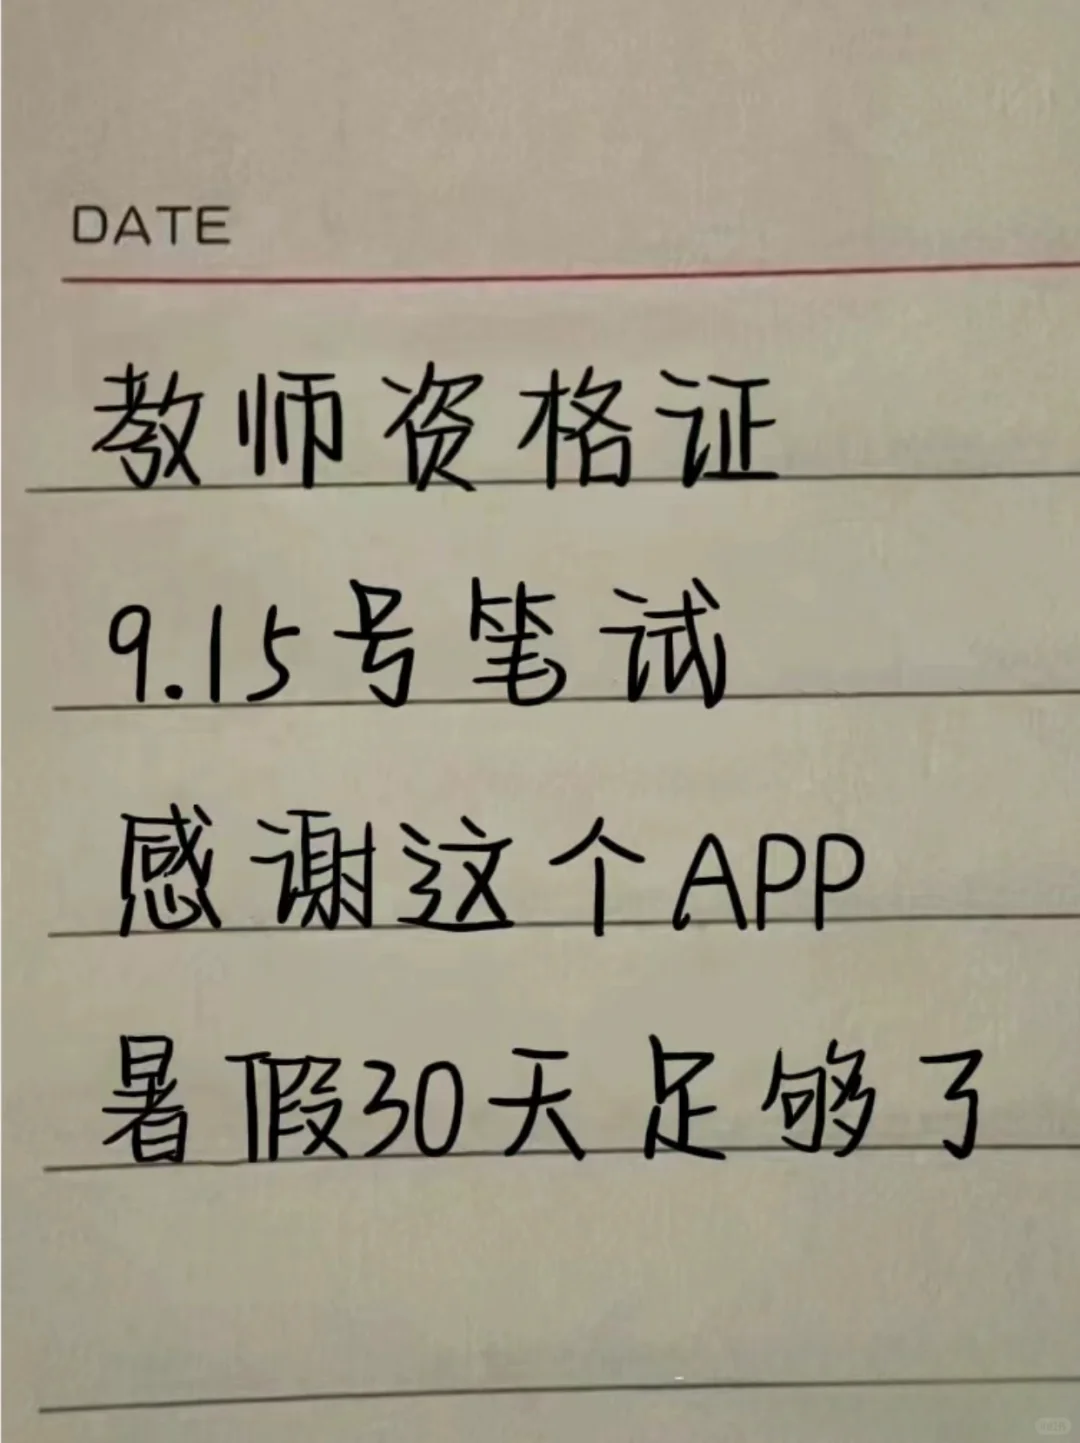 DATE
教师资格证
9.15号笔试
感谢这个APP
暑假30天足够了